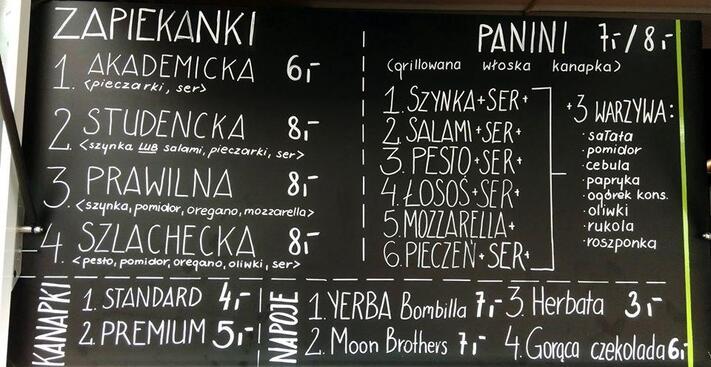 ZAPIEKANKI
1. AKADEMICKA 6,-
<pieczarki, ser>
2. STUDENCKA 8,-
<szynka LUB salami, pieczarki, ser>
3. PRAWILNA 8,-
<szynka, pomidor, oregano, mozzarella>
4. SZLACHECKA 8,-
<pesto, pomidor, oregano, oliwki, ser>
PANINI 7,-/8,-
(grillowana włoska kanapka)
1. SZYNKA+SER+
2. SALAMI+SER+
3. PESTO+SER+
4. ŁOSOŚ+SER+
5. MOZZARELLA+
6. PIECZEŃ+SER+
+3 WARZYWA:
· sałata
· pomidor
· cebula
· papryka
· ogórek kons.
· oliwki
· rukola
· roszponka
KANAPKI
1. STANDARD 4,-
2. PREMIUM 5,-
NAPOJE
1. YERBA Bombilla 7,-
2. Moon Brothers 7,-
3. Herbata 3,-
4. Gorąca czekolada 6,-